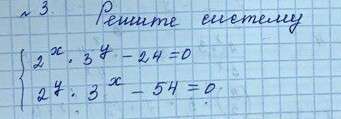 № 3. Решите систему
{ 2^x · 3^y − 24 = 0
2^y · 3^x − 54 = 0